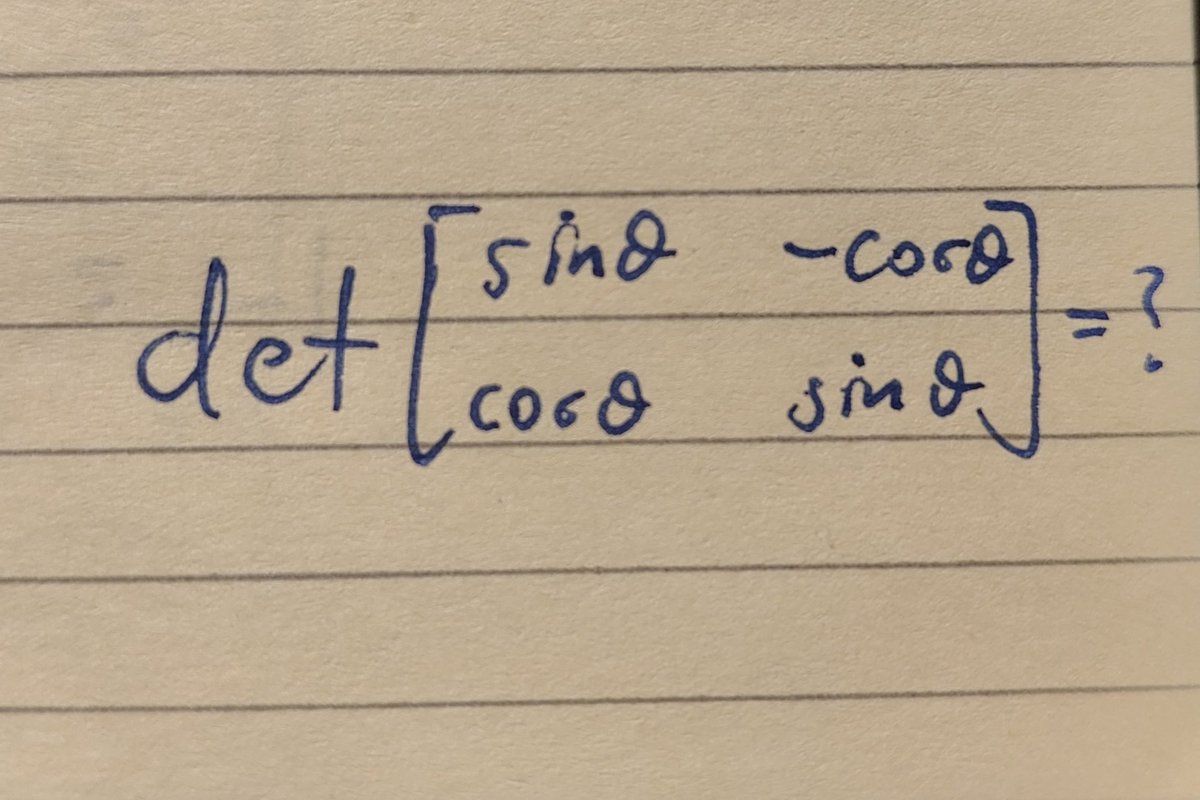 det [ sinθ -cosθ
cosθ sinθ ] = ?